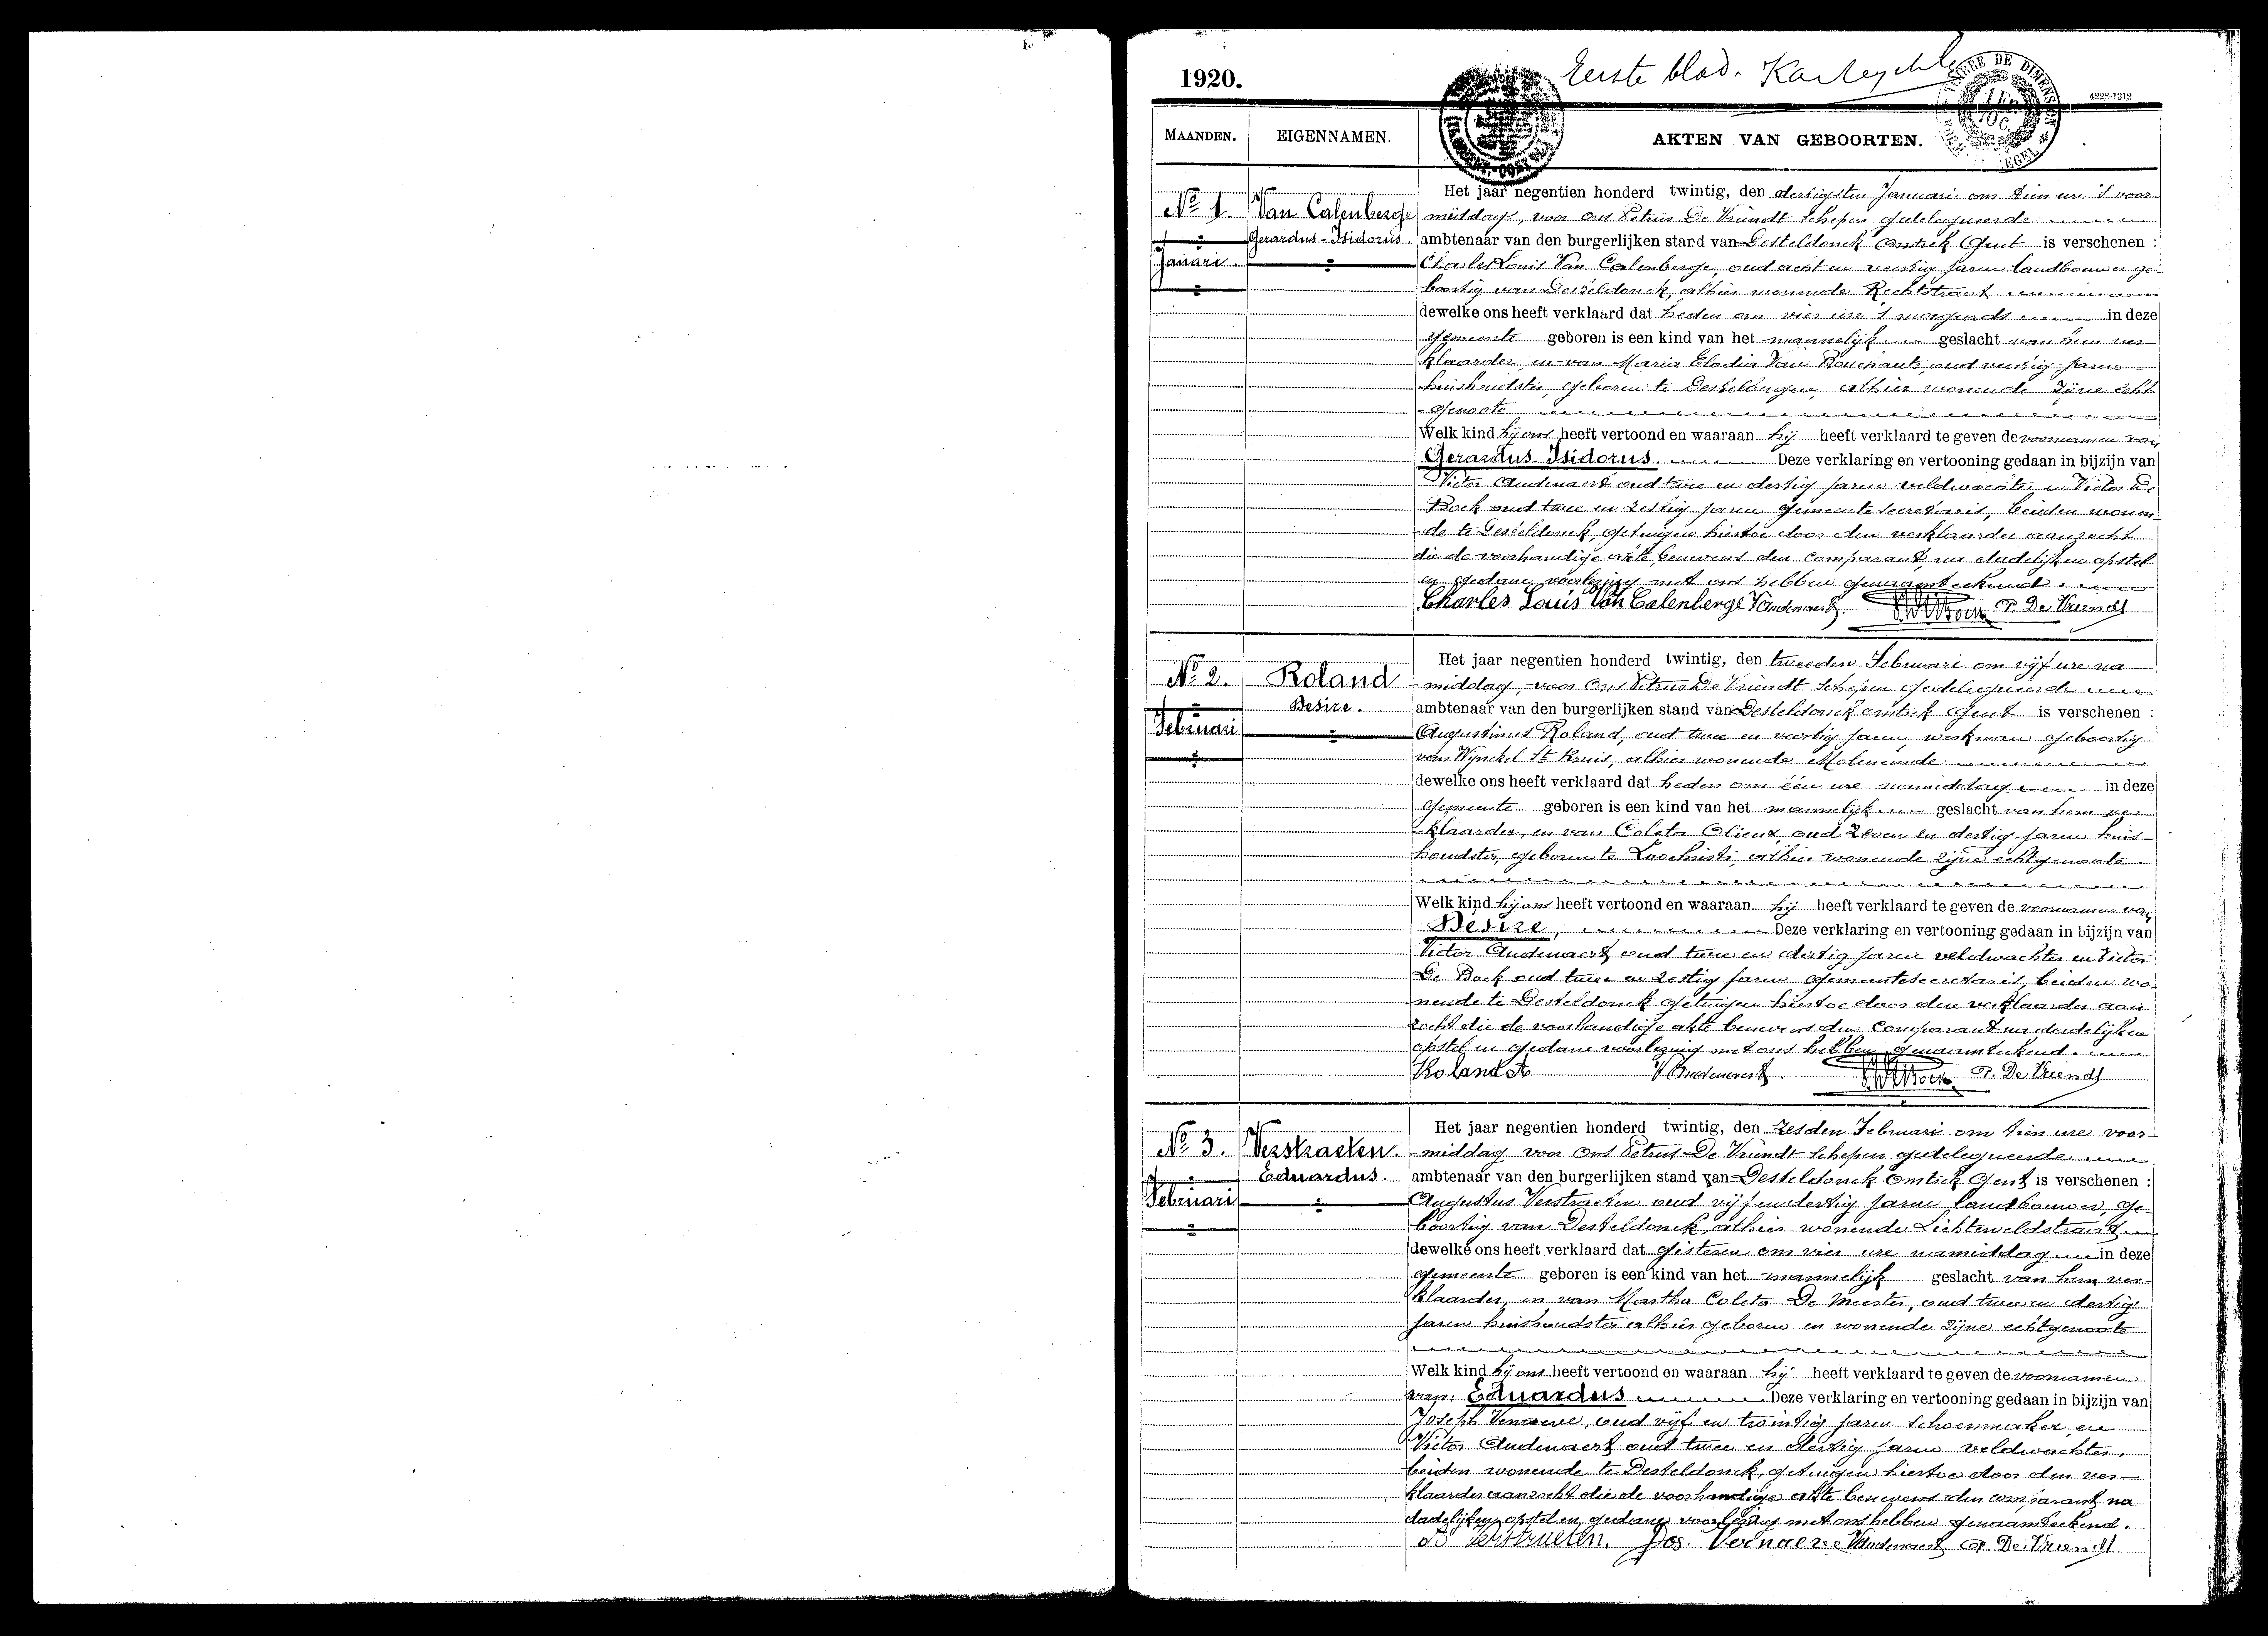 Eerste blad.
1920.
4228-1312
MAANDEN.
EIGENNAMEN.
AKTEN VAN GEBOORTEN.
No 1.
Januari.
Van Calenberge
Gerardus-Isidorus.
Het jaar negentien honderd twintig, den dertigsten Januari om tien ure 's voor-
middags, voor Ons Petrus De Vriendt Schepen gedelegueerde
ambtenaar van den burgerlijken stand van Desteldonck omtrek Gent is verschenen :
Charles Louis Van Calenberge, oud acht en veertig jaren landbouwer ge-
boortig van Desteldonck, alhier wonende Rechtstraat
dewelke ons heeft verklaard dat heden om vier ure 's morgends in deze
gemeente geboren is een kind van het mannelijk geslacht van hem ver-
klaarder, en van Maria Elodia Van oud veertig jaren
geboren te alhier wonende zijne echt
genoote
Welk kind hij ons heeft vertoond en waaraan hij heeft verklaard te geven de voornamen van
Gerardus Isidorus. Deze verklaring en vertooning gedaan in bijzijn van
Victor Audenaert oud twee en dertig jaren veldwachter en Victor De
Bock oud twee en zestig jaren gemeente secretaris, beiden wonen-
de te Desteldonck, getuigen hiertoe door den verklaarder aanzocht
die de voorhandige akte benevens den comparant, na dadelijken opstel
en gedane voorlezing met ons hebben genaamteekend.
Charles Louis Van Calenberge V Audenaert P. De Vriendt
No 2.
Februari
Roland
Desire.
Het jaar negentien honderd twintig, den tweeden Februari om vijf ure na-
middag, voor Ons Petrus De Vriendt Schepen gedelegueerde
ambtenaar van den burgerlijken stand van Desteldonck omtrek Gent is verschenen :
Augustinus Roland, oud twee en veertig jaren, werkman geboortig
van Wynckel St Kruis, alhier wonende Moleneinde
dewelke ons heeft verklaard dat heden om één ure namiddag in deze
gemeente geboren is een kind van het mannelijk geslacht van hem ver-
klaarder, en van Coleta Olieux, oud zeven en dertig jaren huis-
houdster, geboren te Loochristi, alhier wonende zijne echtgenoote.
Welk kind hij ons heeft vertoond en waaraan hij heeft verklaard te geven de voornamen van
Desire, Deze verklaring en vertooning gedaan in bijzijn van
Victor Audenaert oud twee en dertig jaren veldwachter en Victor
De Bock oud twee en zestig jaren gemeentesecretaris, beiden wo-
nende te Desteldonck getuigen hiertoe door den verklaarder aan-
zocht die de voorhandige akte benevens den comparant na dadelijken
opstel en gedane voorlezing met ons hebben genaamteekend.
Roland A V Audenaert P. De Vriendt
No 3.
Februari
Verstraeten.
Eduardus.
Het jaar negentien honderd twintig, den zesden Februari om tien ure voor-
middag voor Ons Petrus De Vriendt Schepen gedelegueerde
ambtenaar van den burgerlijken stand van Desteldonck omtrek Gent is verschenen :
Augustus Verstraeten oud vijf en dertig jaren landbouwer, ge-
boortig van Desteldonck, alhier wonende Lichterveldstraat
dewelke ons heeft verklaard dat gisteren om vier ure namiddag in deze
gemeente geboren is een kind van het mannelijk geslacht van hem ver-
klaarder, en van Martha Coleta De Meester, oud twee en dertig
jaren huishoudster alhier geboren en wonende zijne echtgenoote
Welk kind hij ons heeft vertoond en waaraan hij heeft verklaard te geven de voornamen
van: Eduardus Deze verklaring en vertooning gedaan in bijzijn van
Joseph Vernaeve, oud vijf en twintig jaren schoenmaker, en
Victor Audenaert oud twee en dertig jaren veldwachter,
beiden wonende te Desteldonck, getuigen hiertoe door den ver-
klaarder aanzocht die de voorhandige akte benevens den comparant na
dadelijken opstel en gedane voorlezing met ons hebben genaamteekend.
Verstraeten. Jos. Vernaeve V Audenaert P. De Vriendt